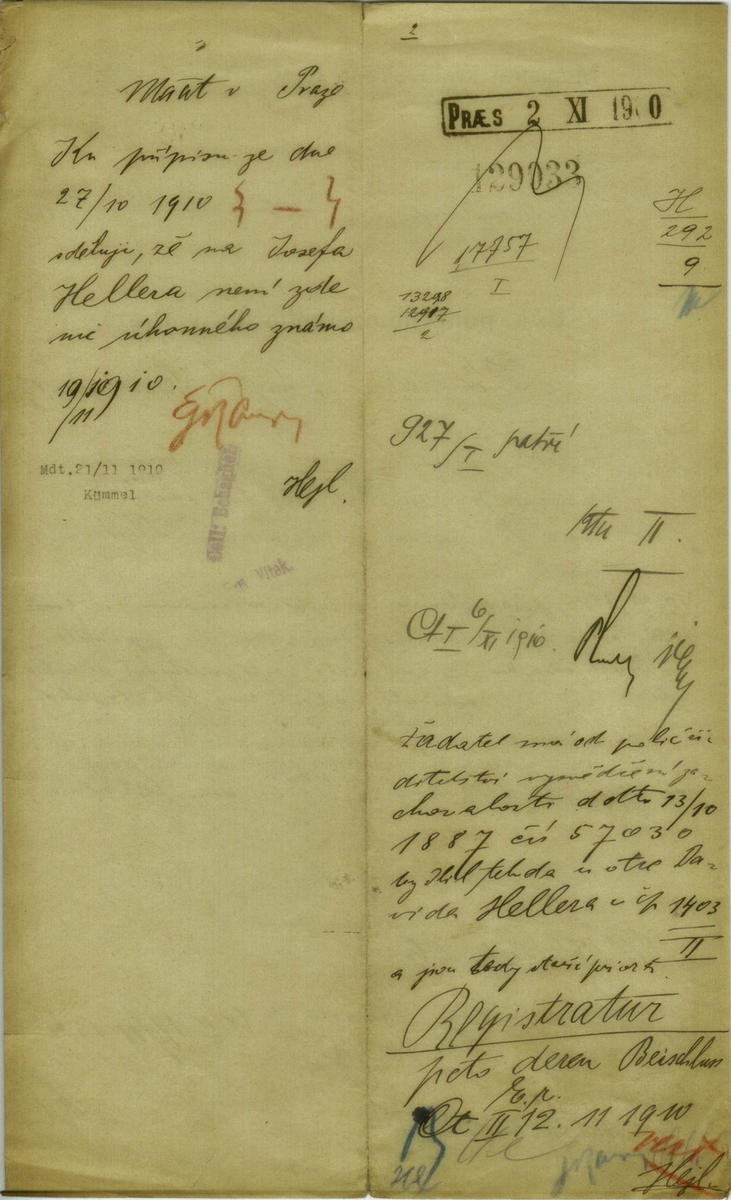 Maat v Praze
Ku přípisu ze dne
27/10 1910
sděluji, že na Josefa
Hellera není zde
nic úhonného známo
19/11 1910.
Mdt.21/11 1910
Kümmel
Hejl.
Coll:
Vlták.
2
PRÆS 2 XI 1910
129033
17757
I
13298
12917
2
H
292
9
927/I patří
II.
Ct I 6/XI 1910.
Žadatel má od polic. ři-
ditelství vysvědčení za-
chovalosti ddto 13/10
1887 čís 57030
tehda u otce Da-
vida Hellera v čp 1403
II
a jsou tedy starší priora.
Registratur
pcto deren Beischluss
E.v.
Ct II 12. 11 1910
Hejl.